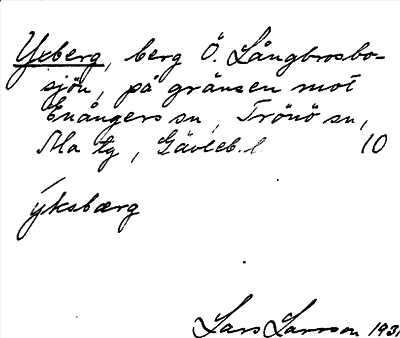 Yxberg, berg Ö. Långbrosbo-
sjön, på gränsen mot
Enångers sn, Trönö sn,
Ala tg, Gävleb. l. 10
ýksbærg
Lars Larsson 1931